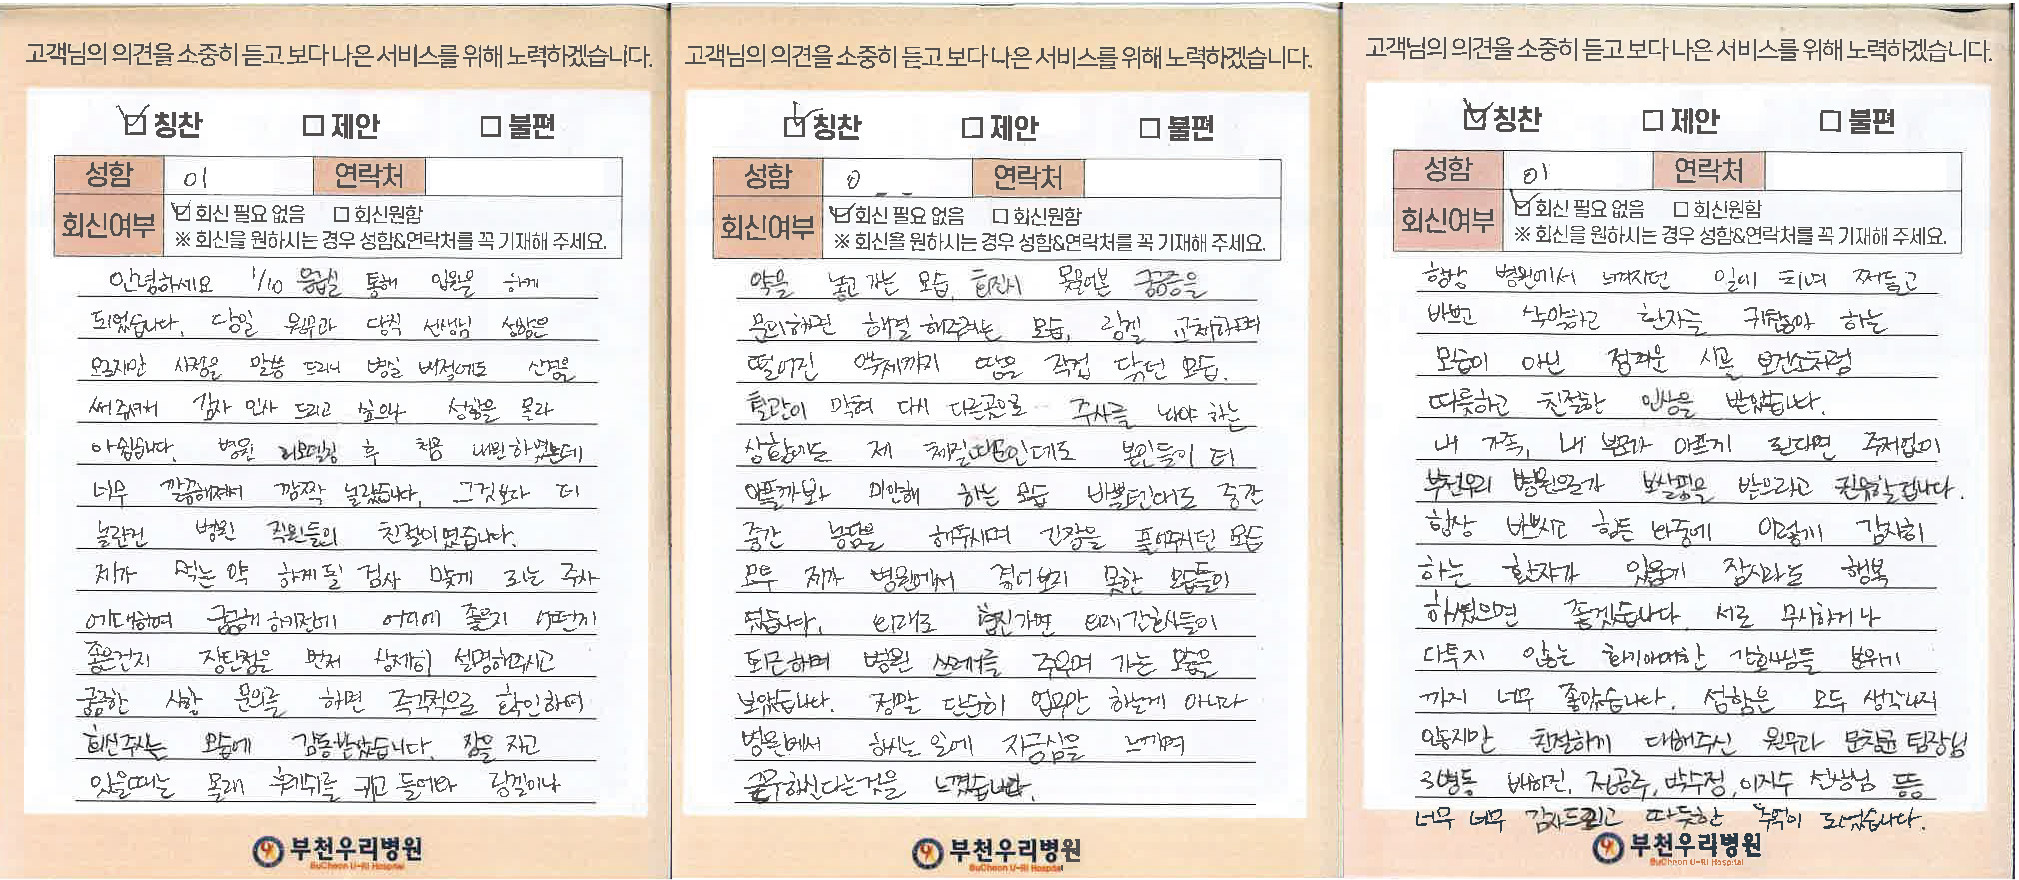 고객님의 의견을 소중히 듣고 보다 나은 서비스를 위해 노력하겠습니다.
☑ 칭찬 □ 제안 □ 불편
성함 이 연락처
회신여부 ☑ 회신 필요 없음 □ 회신원함
※ 회신을 원하시는 경우 성함&연락처를 꼭 기재해 주세요.
안녕하세요 1/10 응급실 통해 입원을 하게
되었습니다. 당일 원무과 당직 선생님 성함은
모르지만 사정을 말씀 드리니 병실 배정에도 신경을
써주셔서 감사 인사 드리고 싶으나 성함을 몰라
아쉽습니다. 병원 리모델링 후 처음 내원하였는데
너무 깔끔해져서 깜짝 놀랐습니다. 그것보다 더
놀란건 병원 직원들의 친절이였습니다.
제가 먹는 약 하게 될 검사 맞게 되는 주사
에대하여 궁금해 하기전에 어디에 좋은지 어떤게
좋은건지 장단점을 먼저 상세히 설명해주시고
궁금한 사항 문의를 하면 즉각적으로 확인하여
회신주시는 모습에 감동받았습니다. 잠을 자고
있을때는 몰래 들어와 링겔이나
부천우리병원
BuCheon U-RI Hospital
고객님의 의견을 소중히 듣고 보다 나은 서비스를 위해 노력하겠습니다.
☑ 칭찬 □ 제안 □ 불편
성함 연락처
회신여부 ☑ 회신 필요 없음 □ 회신원함
※ 회신을 원하시는 경우 성함&연락처를 꼭 기재해 주세요.
약을 놓고 가는 모습, 회진시 못물어본 궁금증을
문의하면 해결 해주려는 모습, 링겔 교체하며
떨어진 약제까지 땀을 직접 닦던 모습.
혈관이 막혀 다시 다른곳으로 주사를 놔야 하는
상황에는 제 체질때문인데도 본인들이 더
아플까봐 미안해 하는 모습 바쁠텐데도 중간
중간 농담을 해주시며 긴장을 풀어주시던 모습
모두 제가 병원에서 겪어보지 못한 모습들이
였습니다. 외래로 협진가면 외래간호사들이
퇴근하며 병원 쓰레기를 주우며 가는 모습을
보았습니다. 정말 단순히 업무만 하는게 아니라
병원에서 하시는 일에 자긍심을 느끼며
근무하신다는것을 느꼈습니다.
부천우리병원
BuCheon U-RI Hospital
고객님의 의견을 소중히 듣고 보다 나은 서비스를 위해 노력하겠습니다.
☑ 칭찬 □ 제안 □ 불편
성함 이 연락처
회신여부 ☑ 회신 필요 없음 □ 회신원함
※ 회신을 원하시는 경우 성함&연락처를 꼭 기재해 주세요.
항상 병원에서 느껴지던 일에 치여 쩌들고
바쁘고 삭막하고 환자를 귀찮아 하는
모습이 아닌 정겨운 시골 보건소처럼
따뜻하고 친절한 인상을 받았습니다.
내 가족, 내 부모가 아프게 된다면 주저없이
부천우리 병원으로가 보살핌을 받으라고 권유할겁니다.
항상 바쁘시고 힘든 와중에 이렇게 감사히
하는 환자가 있음에 잠시라도 행복
하셨으면 좋겠습니다. 서로 무시하거나
다투지 않는 화기애애한 간호사님들 분위기
까지 너무 좋았습니다. 성함은 모두 생각나지
않지만 친절하게 대해주신 원무과 문창균 팀장님
3병동 배하진, 정공주, 박수정, 이지수 선생님 등등
너무 너무 감사드리고 따듯한 추억이 되었습니다.
부천우리병원
BuCheon U-RI Hospital